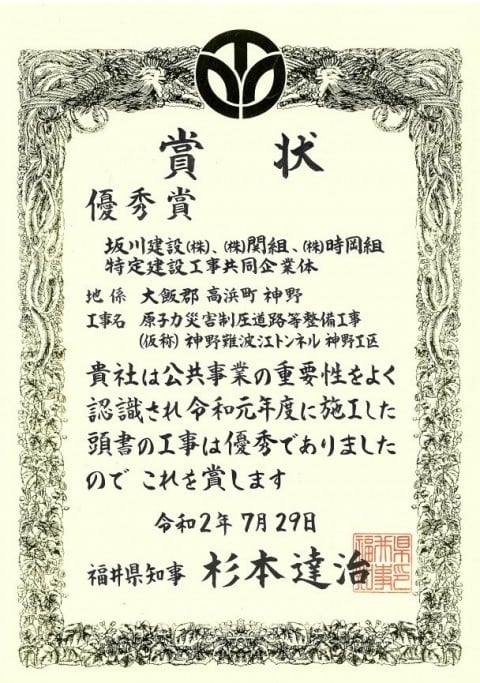 賞状
優秀賞
坂川建設(株)、(株)関組、(株)時岡組
特定建設工事共同企業体
地係 大飯郡 高浜町 神野
工事名 原子力災害制圧道路等整備工事
(仮称) 神野難波江トンネル 神野工区
貴社は公共事業の重要性をよく
認識され令和元年度に施工した
頭書の工事は優秀でありました
ので これを賞します
令和2年7月29日
福井県知事 杉本達治
福井県知事印